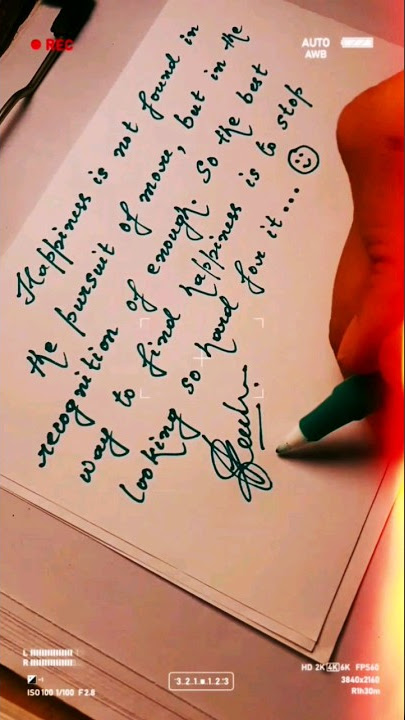 REC
AUTO
AWB
Happiness is not found in
the pursuit of more, but in the
recognition of enough. So the best
way to find happiness is to stop
looking so hard for it... ☺
L
R
ISO 100 1/100 F2.8
3.2.1.■.1.2.3
HD 2K 4K 6K FPS60
3840x2160
R1h30m